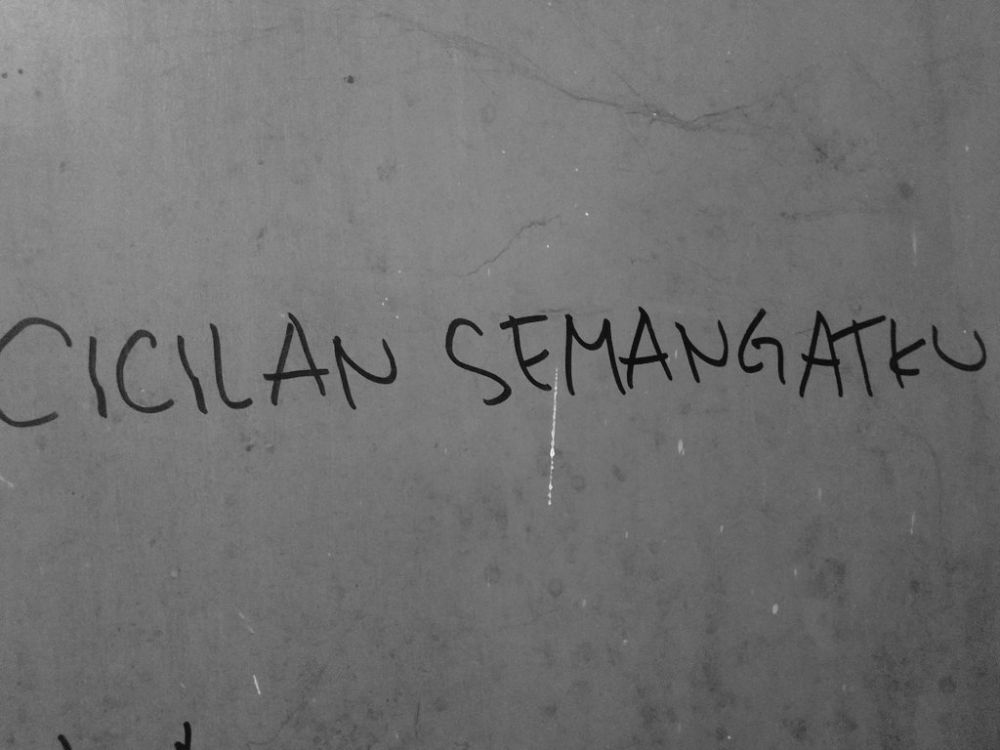 CICILAN SEMANGATKU